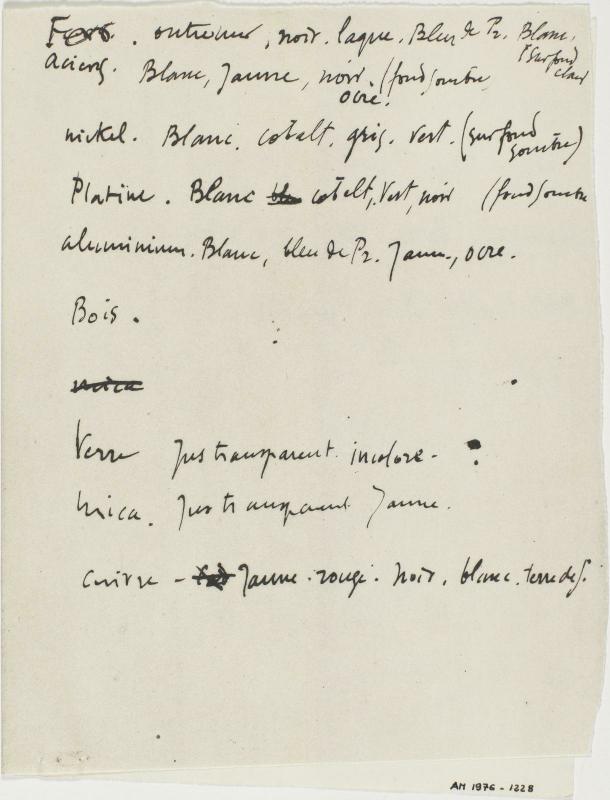 Fers. outremer, noir. laque. Bleu de Pr. Blanc. (sur fond clair
aciers. Blanc, Jaune, noir. (fond sombre
ocre.
nickel. Blanc. cobalt. gris. vert. (sur fond sombre)
Platine. Blanc cobalt, Vert, noir (fond sombre
aluminium. Blanc, bleu de Pr. Jaune, ocre.
Bois.
mica
Verre Jus transparent incolore - ?
Mica. Jus transparent Jaune.
cuivre - Jaune. rouge. noir. blanc. terre de S.
AM 1976-1228